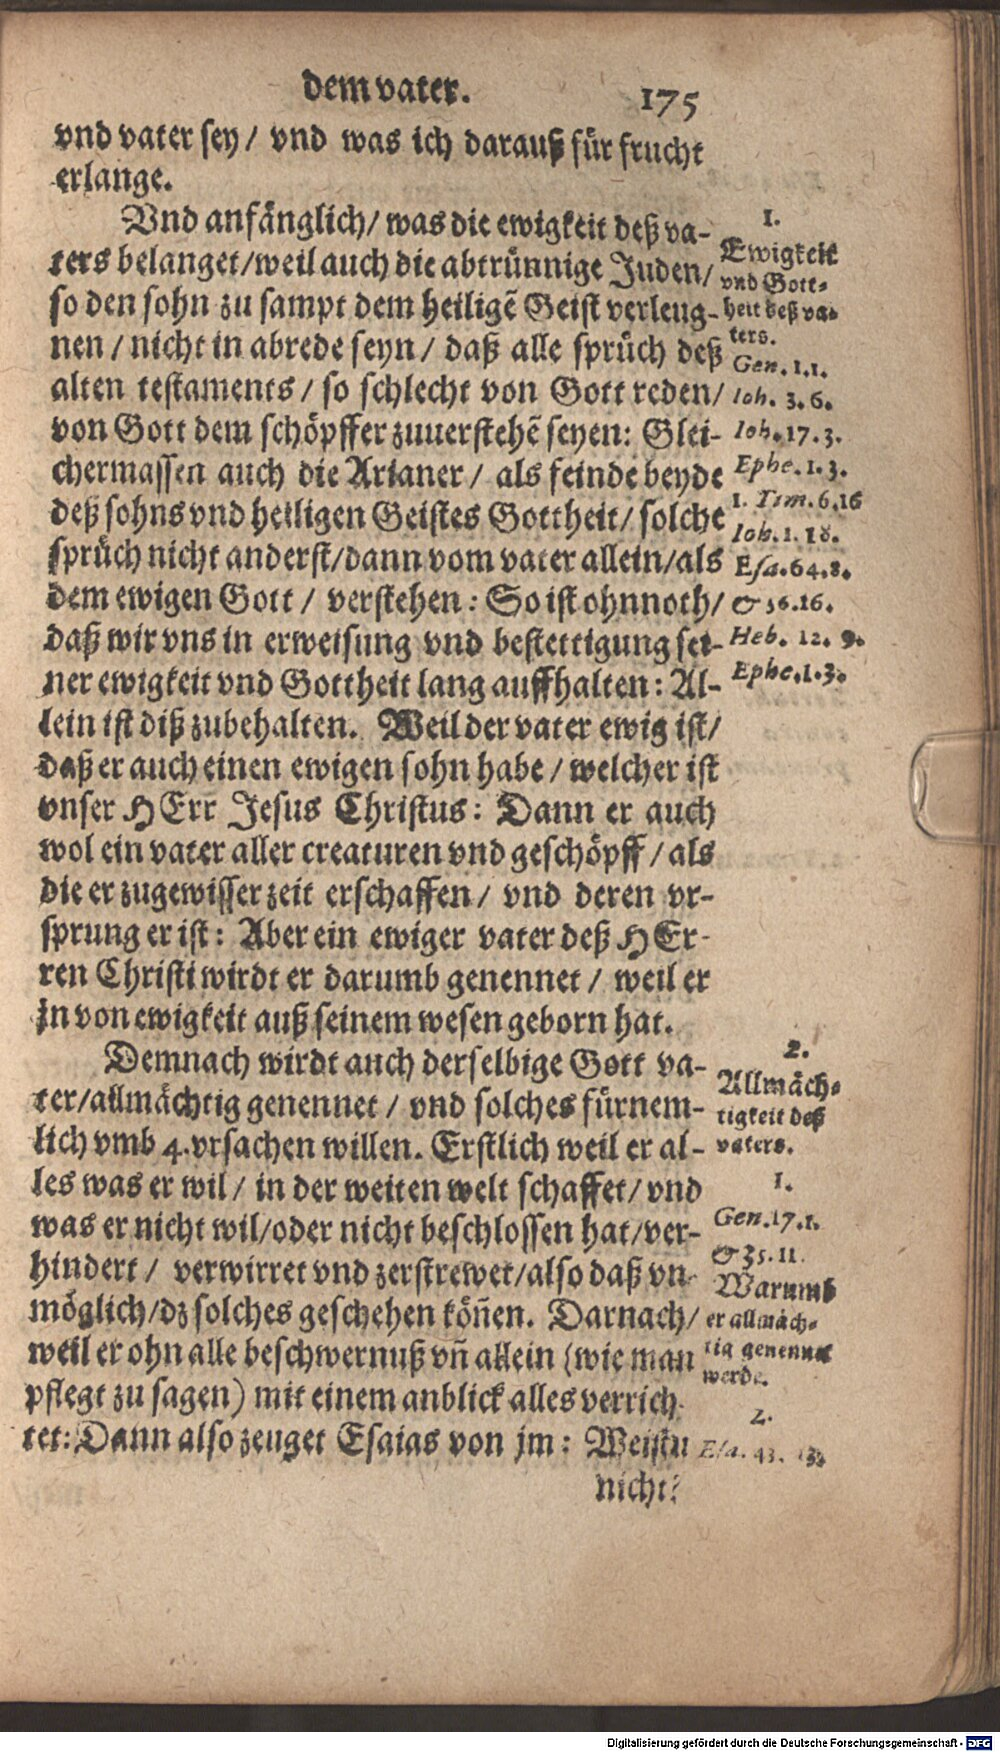 dem vater.
175
vnd vater sey / vnd was ich darauß für frucht
erlange.
Vnd anfänglich / was die ewigkeit deß va-
ters belanget / weil auch die abtrünnige Juden /
so den sohn zu sampt dem heiligẽ Geist verleug-
nen / nicht in abrede seyn / daß alle sprüch deß
alten testaments / so schlecht von Gott reden /
von Gott dem schöpffer zuuerstehẽ seyen: Glei-
chermassen auch die Arianer / als feinde beyde
deß sohns vnd heiligen Geistes Gottheit / solche
sprüch nicht anderst / dann vom vater allein / als
dem ewigen Gott / verstehen: So ist ohnnoth /
daß wir vns in erweisung vnd bestettigung sei-
ner ewigkeit vnd Gottheit lang auffhalten: Al-
lein ist diß zubehalten. Weil der vater ewig ist /
daß er auch einen ewigen sohn habe / welcher ist
vnser HErr Jesus Christus: Dann er auch
wol ein vater aller creaturen vnd geschöpff / als
die er zugewisser zeit erschaffen / vnd deren vr-
sprung er ist: Aber ein ewiger vater deß HEr-
ren Christi wirdt er darumb genennet / weil er
jn von ewigkeit auß seinem wesen geborn hat.
Demnach wirdt auch derselbige Gott va-
ter / allmächtig genennet / vnd solches fürnem-
lich vmb 4. vrsachen willen. Erstlich weil er al-
les was er wil / in der weiten welt schaffet / vnd
was er nicht wil / oder nicht beschlossen hat / ver-
hindert / verwirret vnd zerstrewet / also daß vn-
möglich / dz solches geschehen köñen. Darnach /
weil er ohn alle beschwernuß vñ allein (wie man
pflegt zu sagen) mit einem anblick alles verrich-
tet: Dann also zeuget Esaias von jm: Weistu
nicht?
1.
Ewigkeit
vnd Gott-
heit deß va-
ters.
Gen. 1.1.
Ioh. 3.6.
Ioh. 17.3.
Ephe. 1.3.
1. Tim. 6.16
Ioh. 1.18.
Esa. 64.8.
& 36.16.
Heb. 12. 9.
Ephe. 1.3.
2.
Allmäch-
tigkeit deß
vaters.
1.
Gen. 17.1.
& 35.11.
Warumb
er allmäch-
tig genennet
werde.
2.
Esa. 43. 13.
Digitalisierung gefördert durch die Deutsche Forschungsgemeinschaft - DFG